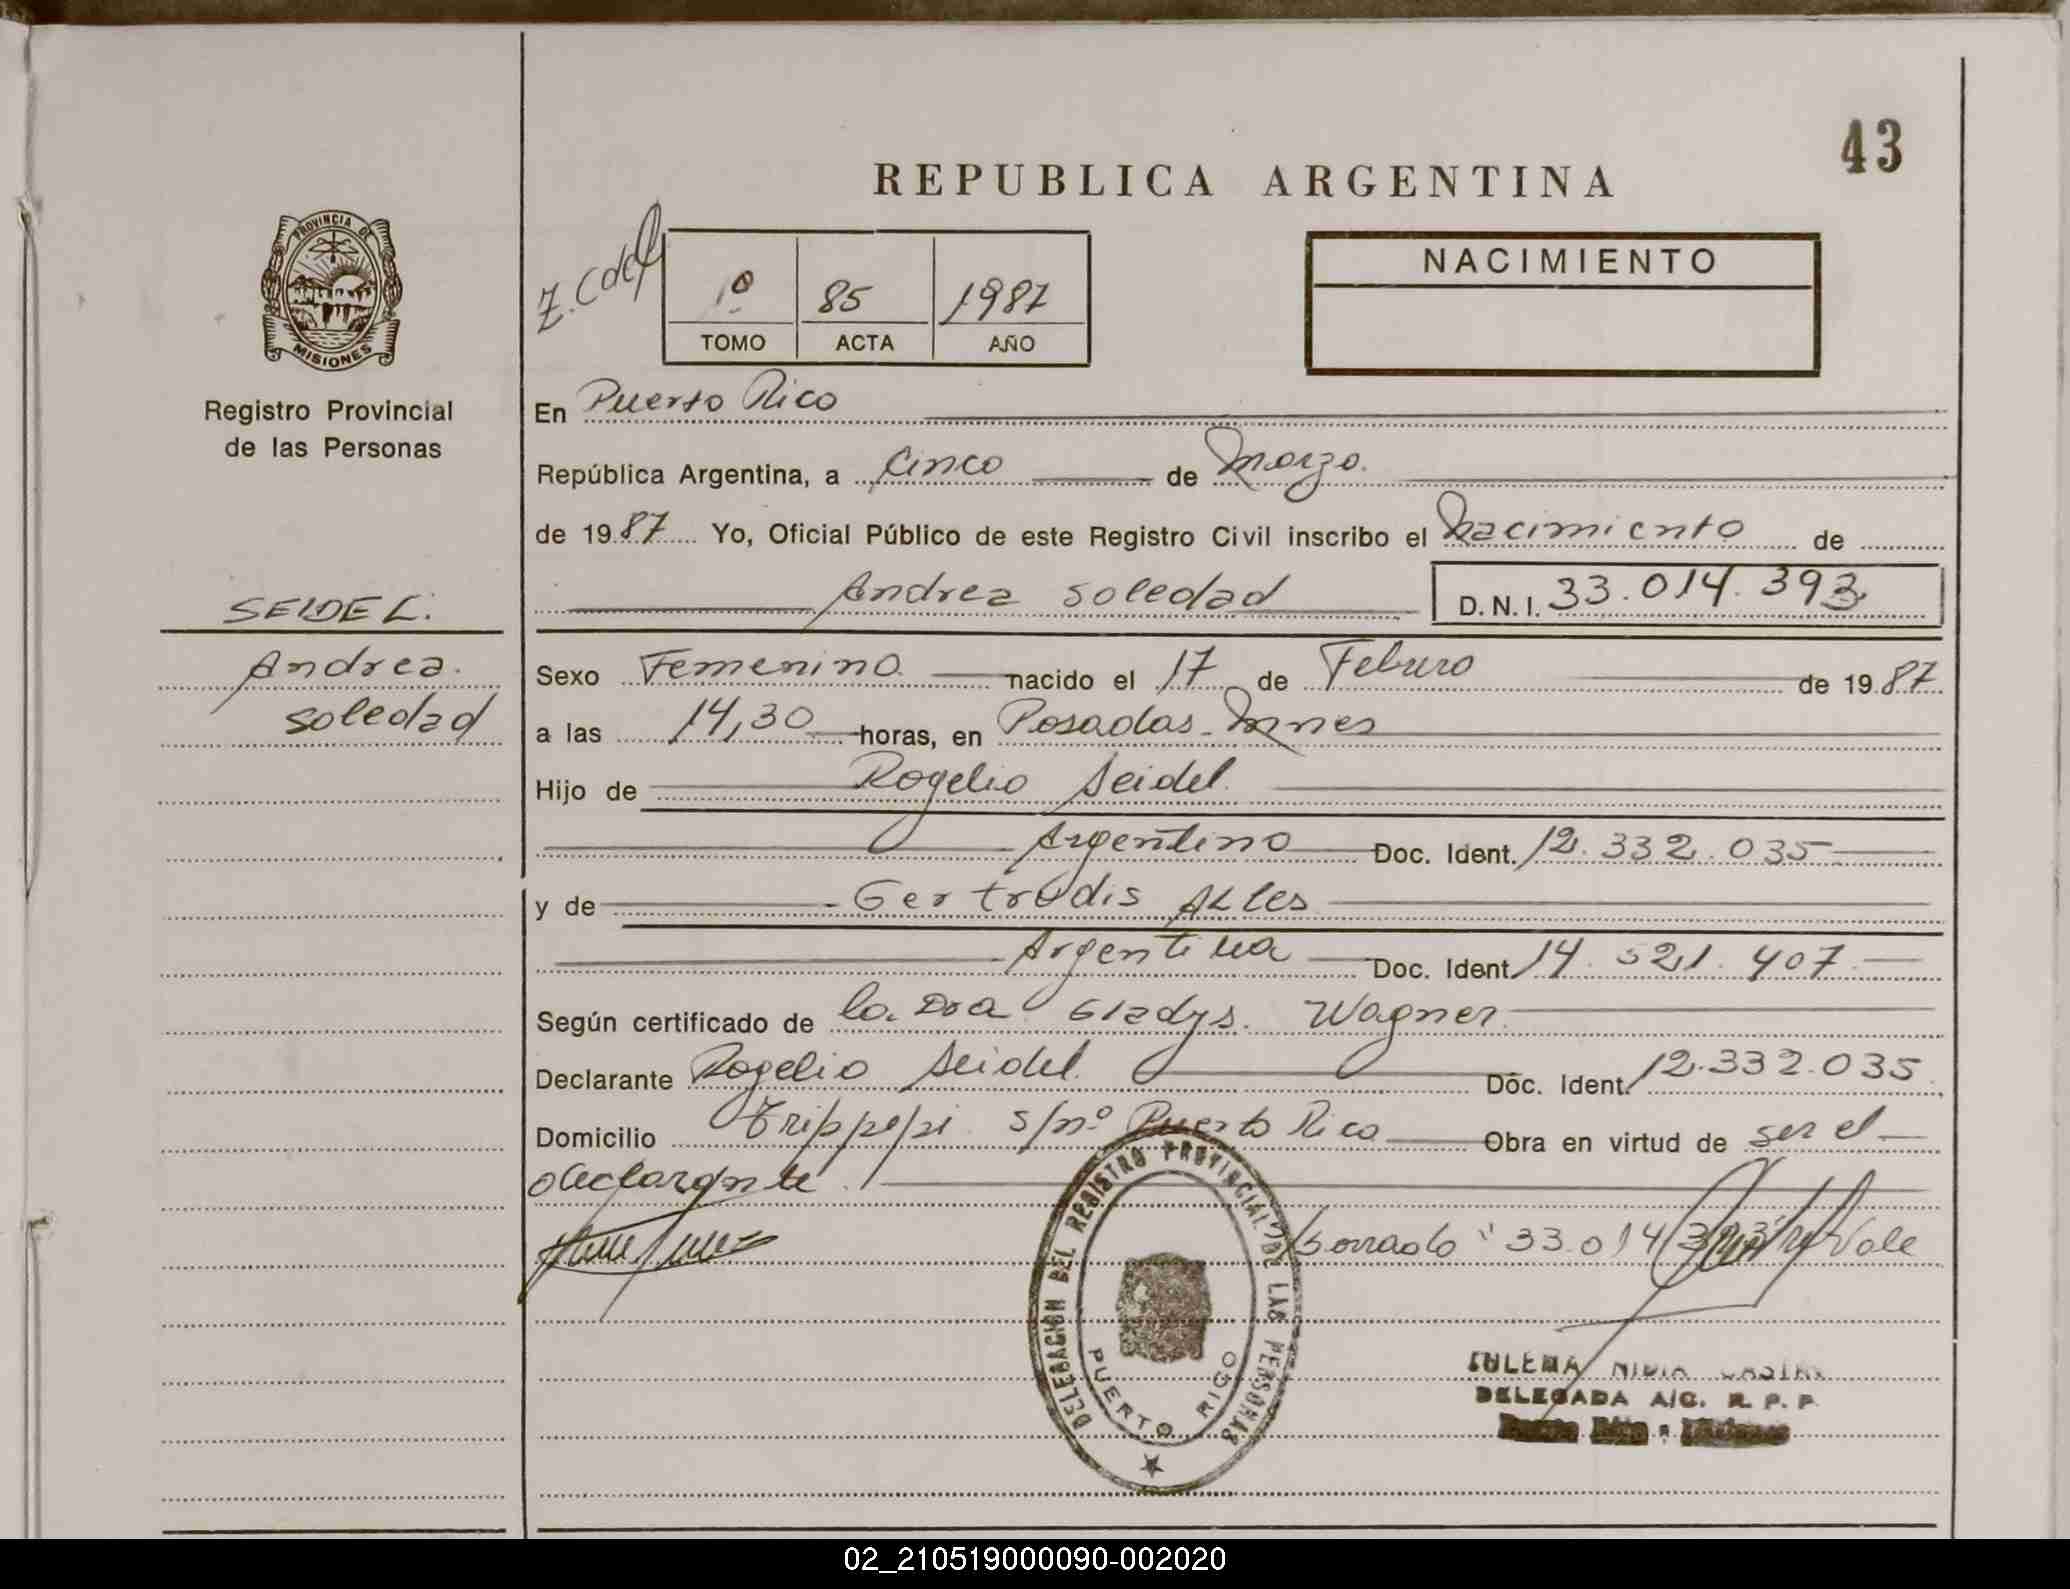 43
REPUBLICA ARGENTINA
PROVINCIA DE
MISIONES
Registro Provincial
de las Personas
1º 85 1987
TOMO ACTA AÑO
NACIMIENTO
En Puerto Rico
República Argentina, a cinco de Marzo.
de 1987 Yo, Oficial Público de este Registro Civil inscribo el Nacimiento de
Andrea Soledad D.N.I. 33.014.393
SEIDEL.
Andrea
Soledad
Sexo Femenino nacido el 17 de Febrero de 1987
a las 14,30 horas, en Posadas - Mnes
Hijo de Rogelio Seidel
Argentino Doc. Ident. 12.332.035
y de Gertrudis Alles
Argentina Doc. Ident 14.521.407
Según certificado de la Dra Gladys Wagner
Declarante Rogelio Seidel Doc. Ident. 12.332.035
Domicilio Trippepi s/nº Puerto Rico Obra en virtud de ser el
declarante.
borrado "33.014 Vale
DELEGACION DEL REGISTRO PROVINCIAL DE LAS PERSONAS
PUERTO RICO
NIDIA
DELEGADA A/C. R. P. P.
Puerto Rico - Misiones
02_210519000090-002020